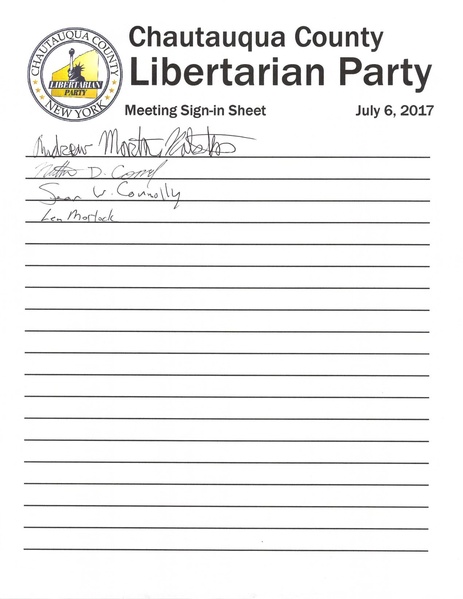 CHAUTAUQUA COUNTY
LIBERTARIAN
PARTY
NEW YORK
Chautauqua County
Libertarian Party
Meeting Sign-in Sheet July 6, 2017
Andrew Morton
D.
Sean W. Connolly
Len Morlock